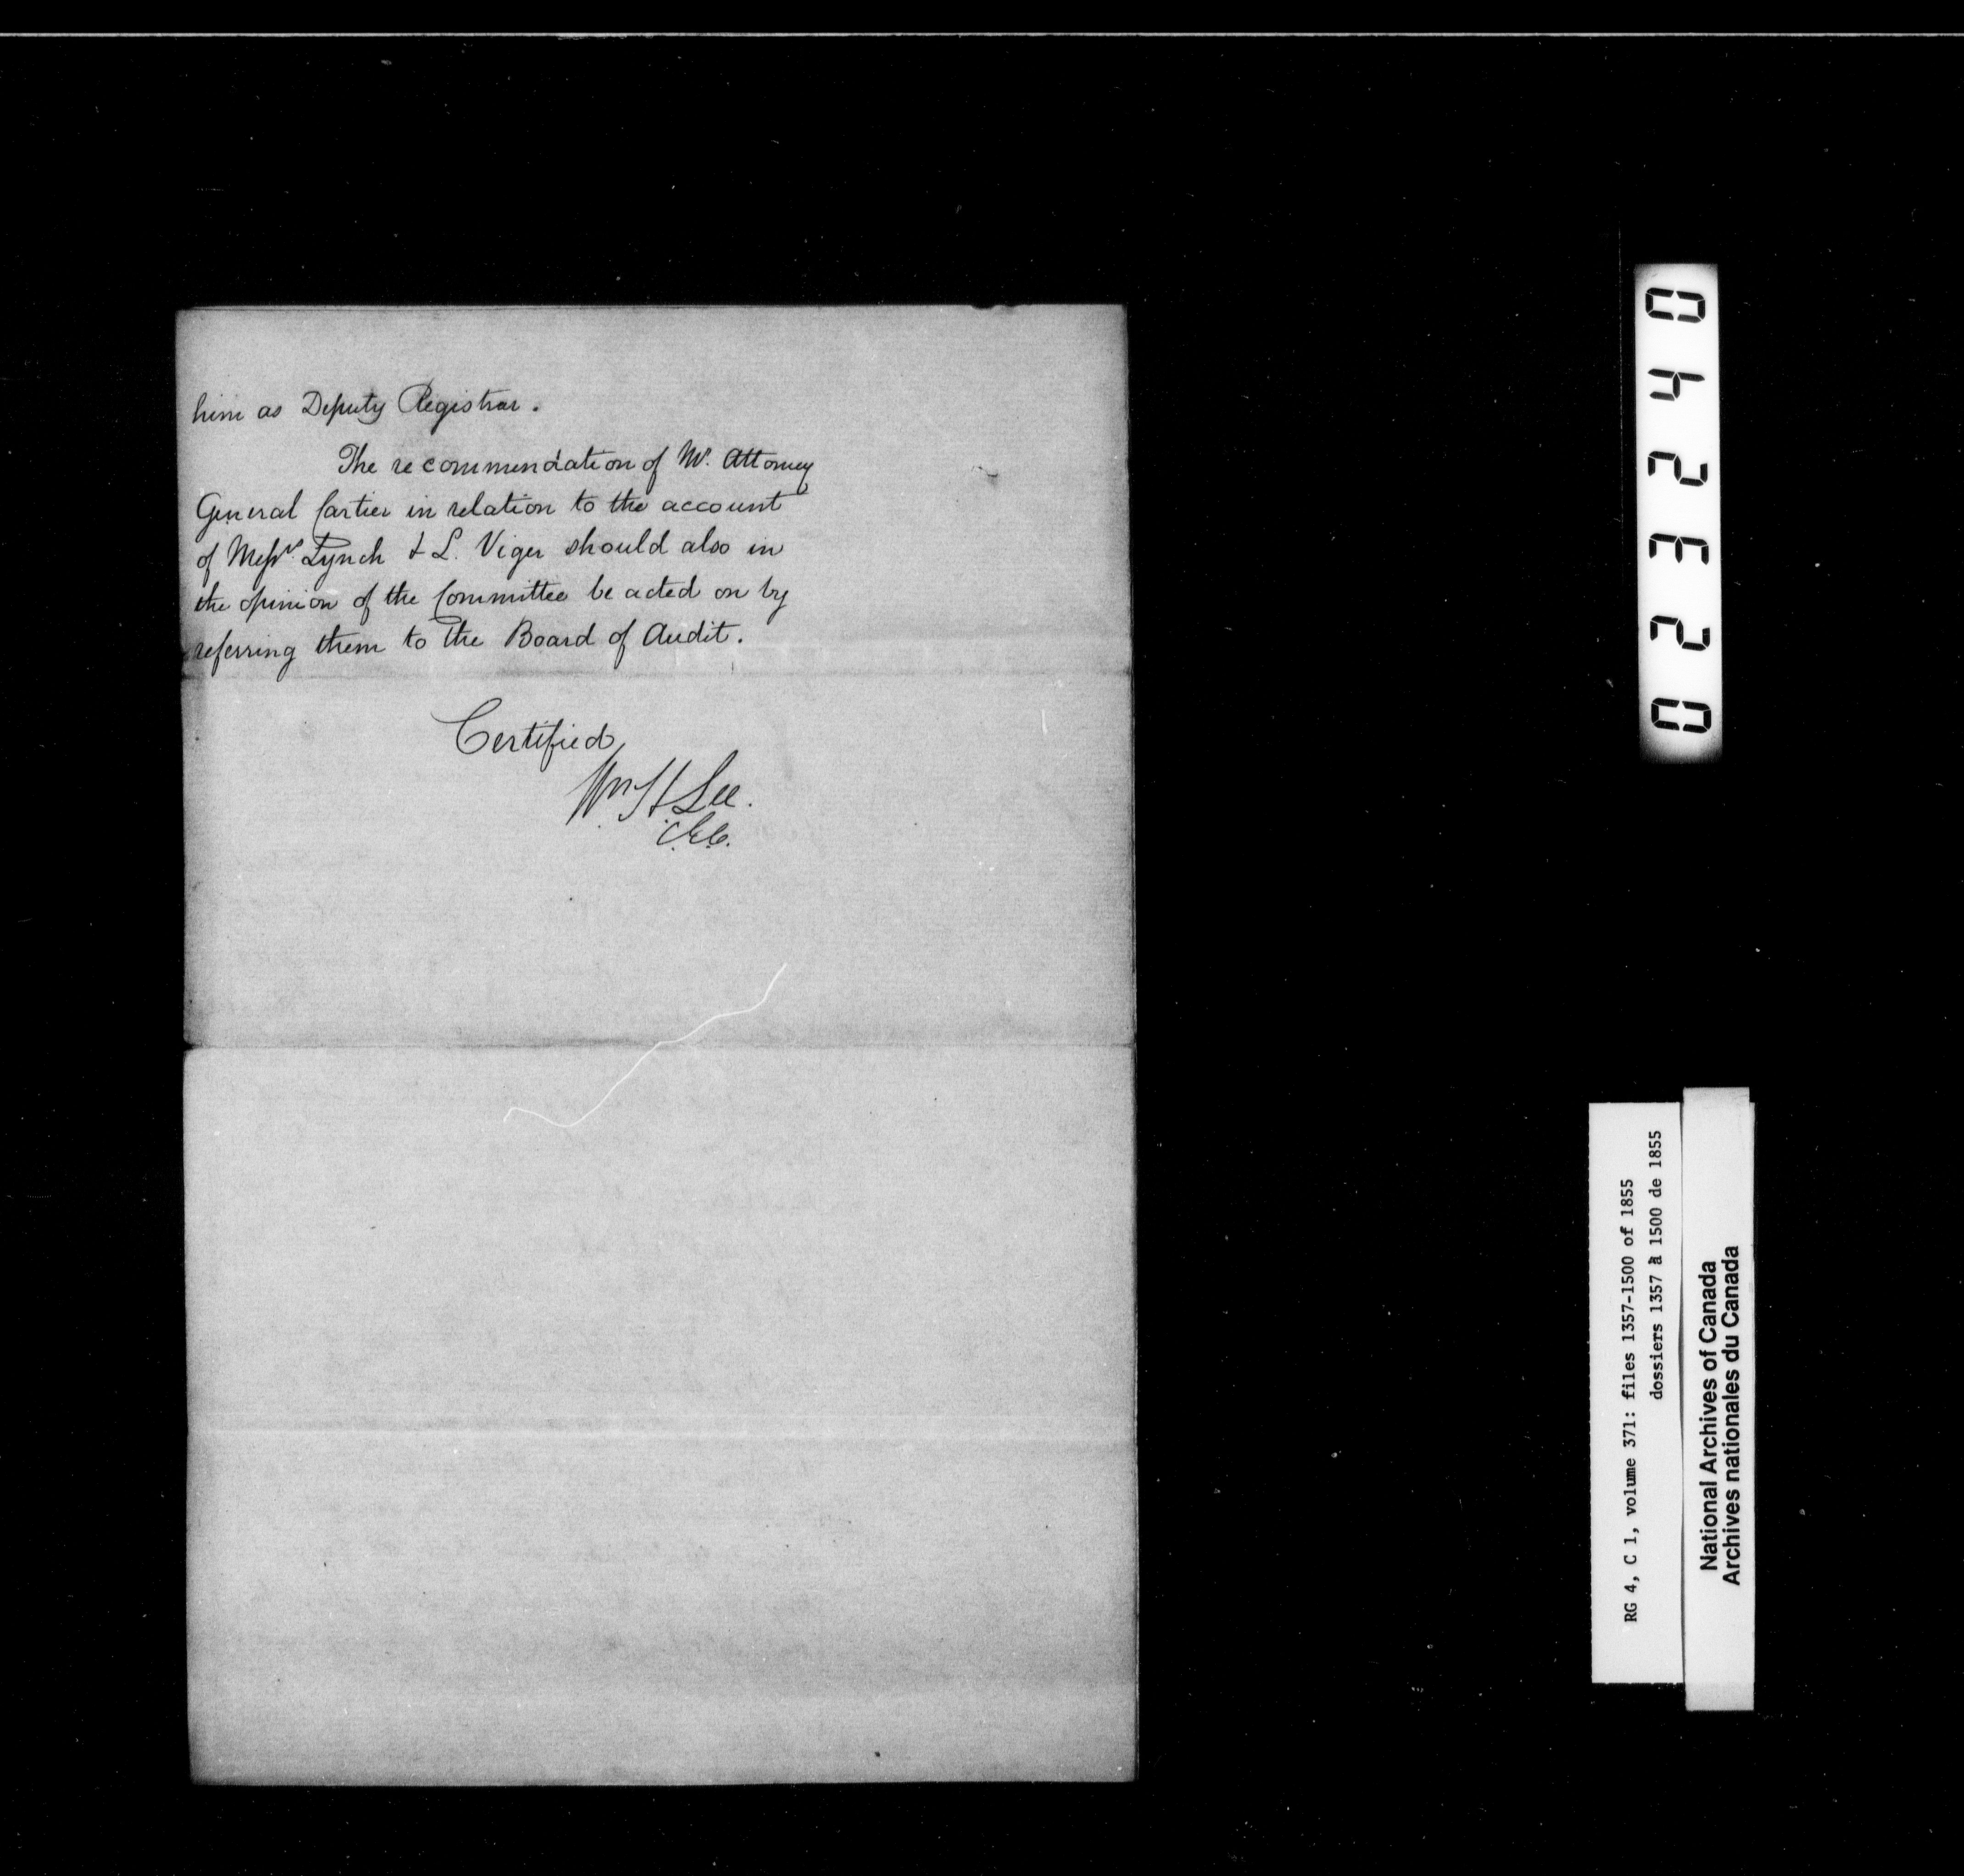 him as Deputy Registrar.
The recommendation of Mr. Attorney
General Cartier in relation to the account
of Messrs Lynch & L. Viger should also in
the opinion of the Committee be acted on by
referring them to the Board of Audit.
Certified
Wm H Lee.
C.E.C.
042320
RG 4, C 1, volume 371: files 1357-1500 of 1855
dossiers 1357 à 1500 de 1855
National Archives of Canada
Archives nationales du Canada